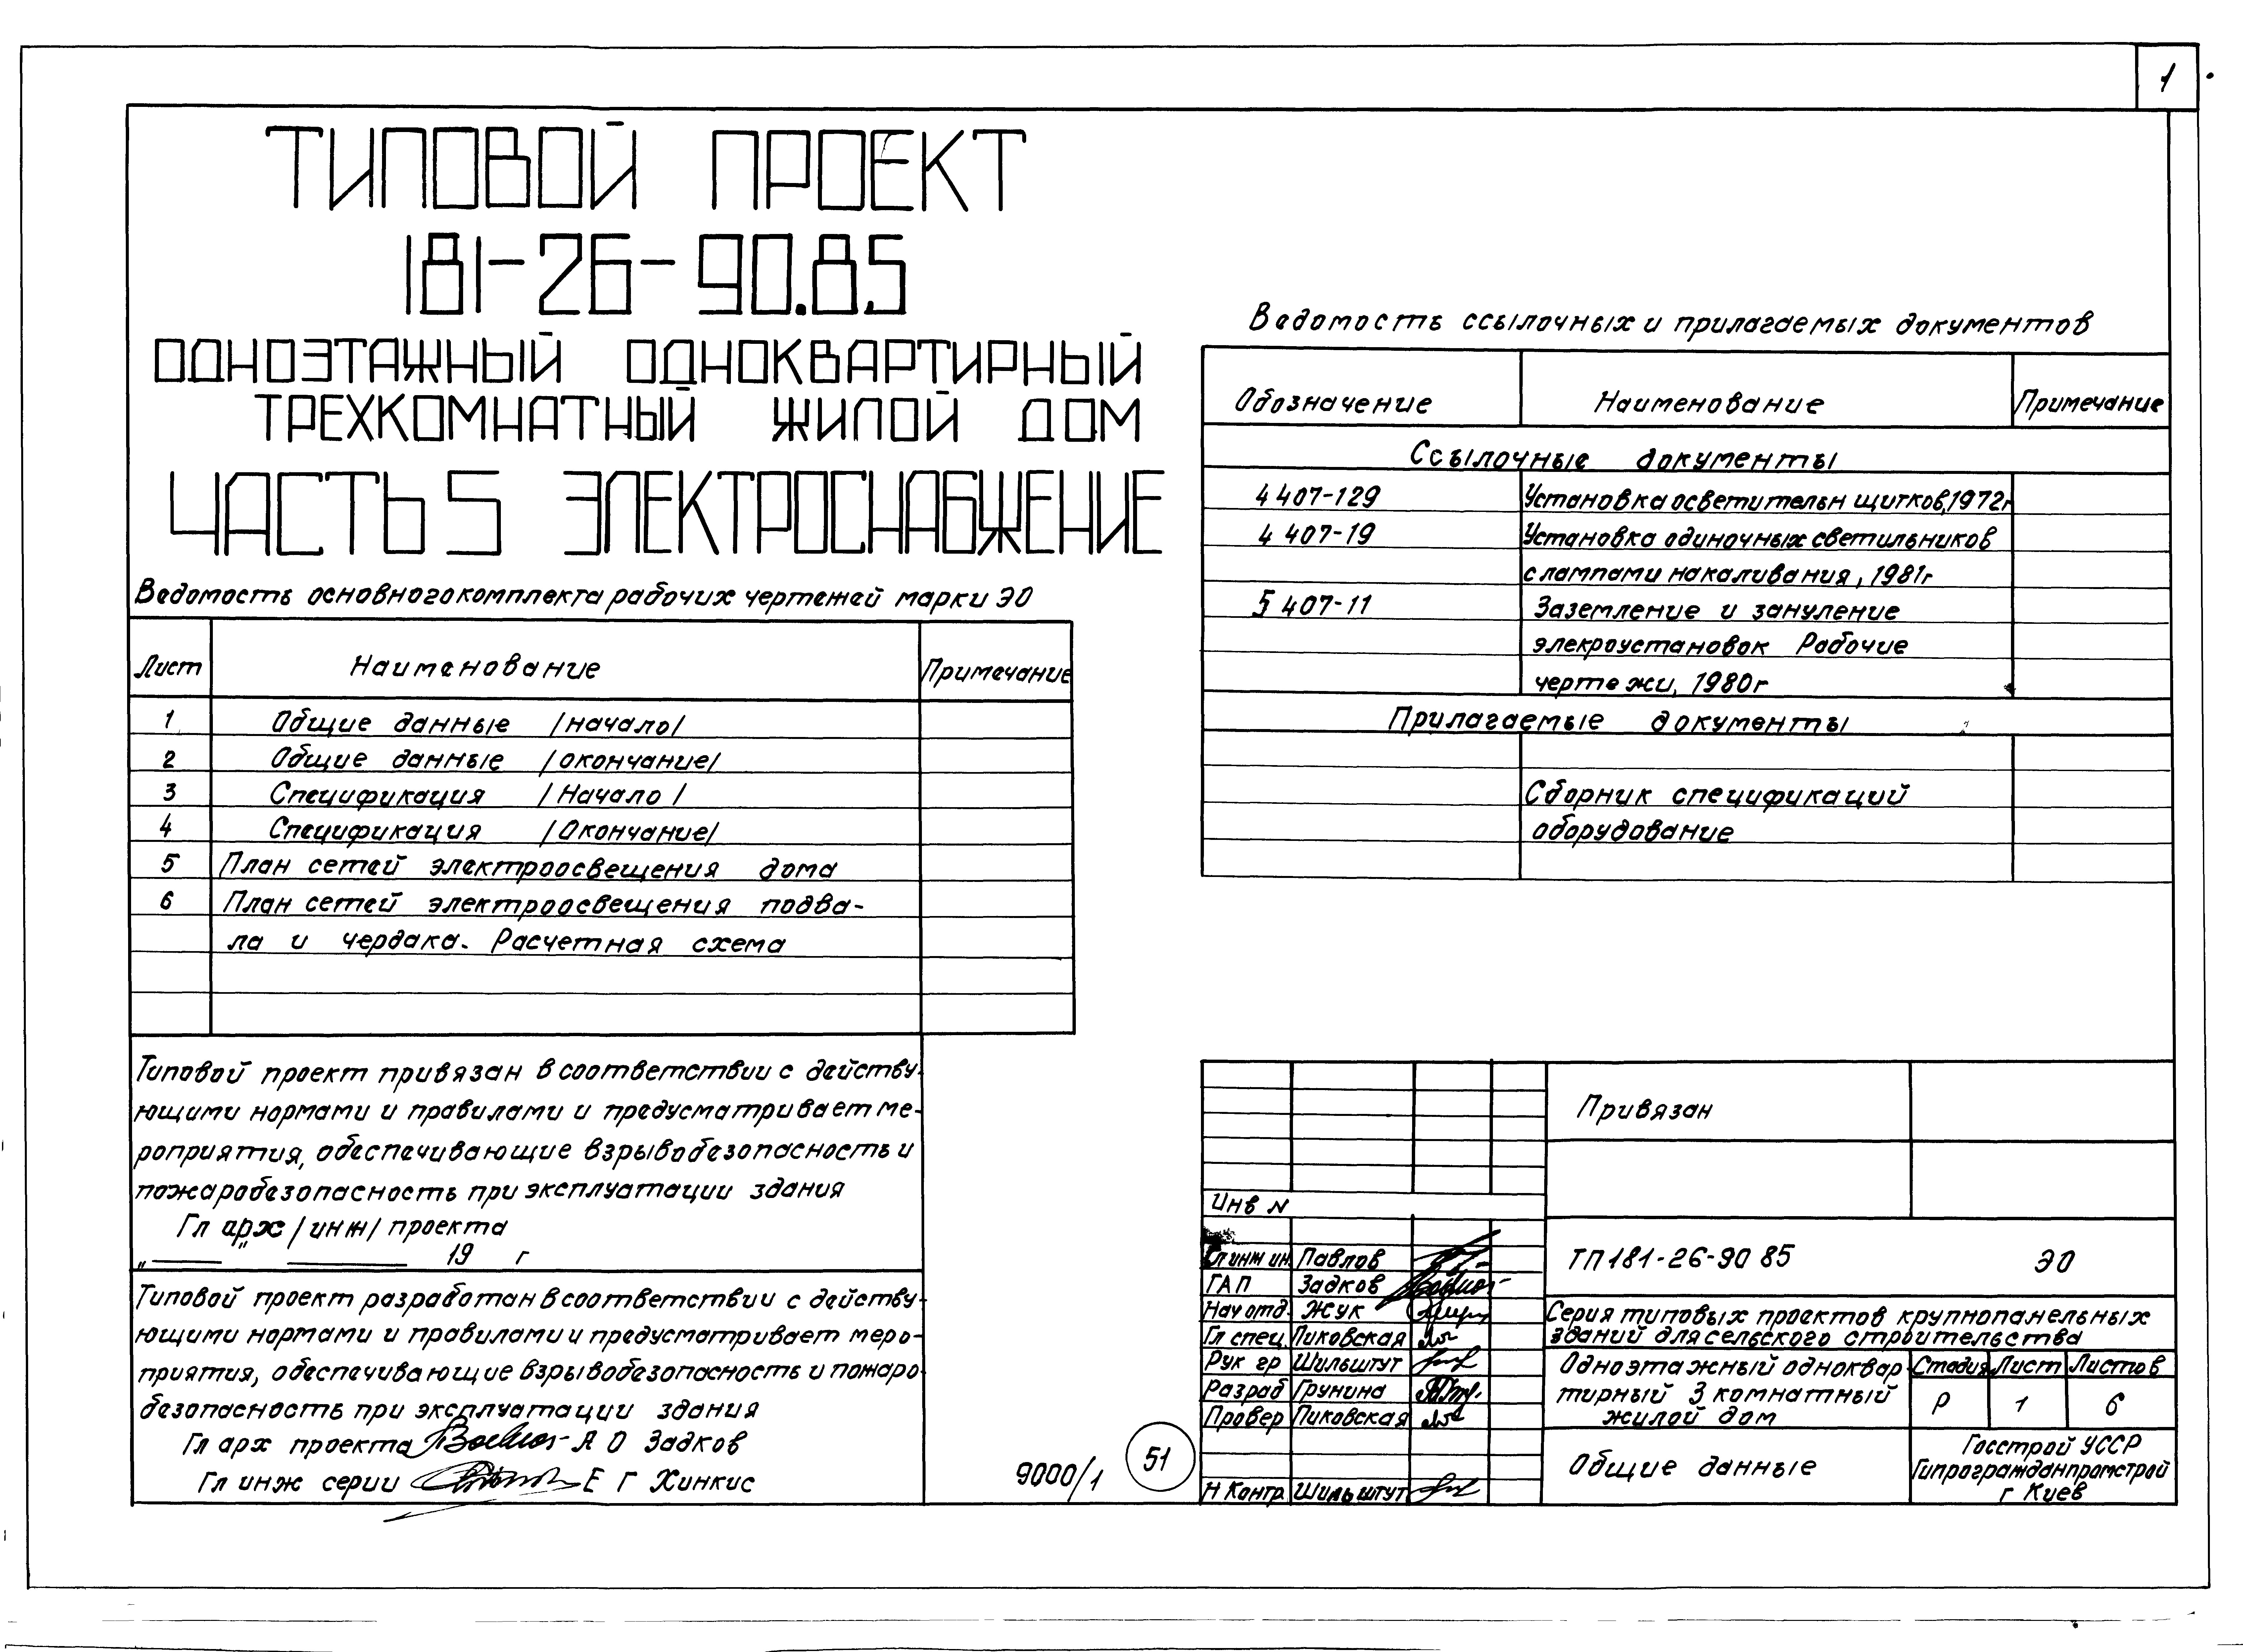 1
ТИПОВОЙ ПРОЕКТ
181-26-90.85
ОДНОЭТАЖНЫЙ ОДНОКВАРТИРНЫЙ
ТРЕХКОМНАТНЫЙ ЖИЛОЙ ДОМ
ЧАСТЬ 5 ЭЛЕКТРОСНАБЖЕНИЕ
Ведомость основного комплекта рабочих чертежей марки ЭО
Лист Наименование Примечание
1 Общие данные /начало/
2 Общие данные /окончание/
3 Спецификация /Начало/
4 Спецификация /Окончание/
5 План сетей электроосвещения дома
6 План сетей электроосвещения подва-
ла и чердака. Расчетная схема
Типовой проект привязан в соответствии с действу-
ющими нормами и правилами и предусматривает ме-
роприятия, обеспечивающие взрывобезопасность и
пожаробезопасность при эксплуатации здания
Гл арх /инж/ проекта
„ " 19 г
Типовой проект разработан в соответствии с действу-
ющими нормами и правилами и предусматривает меро-
приятия, обеспечивающие взрывобезопасность и пожаро-
безопасность при эксплуатации здания
Гл арх проекта А О Задков
Гл инж серии Е Г Хинкис
9000/1
51
Ведомость ссылочных и прилагаемых документов
Обозначение Наименование Примечание
Ссылочные документы
4 407-129 Установка осветительн щитков, 1972г
4 407-19 Установка одиночных светильников
с лампами накаливания, 1981г
5 407-11 Заземление и зануление
элекроустановок Рабочие
чертежи, 1980г
Прилагаемые документы
Сборник спецификаций
оборудование
Привязан
Инв N
Гл инж ин. Павлов
ГАП Задков
Нач отд. Жук
Гл спец. Пиковская
Рук гр Шильштут
Разраб Грунина
Провер Пиковская
Н Контр Шильштут
ТП 181-26-90 85 ЭО
Серия типовых проектов крупнопанельных
зданий для сельского строительства
Одноэтажный одноквар-
тирный 3 комнатный
жилой дом
Стадия Лист Листов
Р 1 6
Общие данные
Госстрой УССР
Гипрогражданпромстрой
г Киев